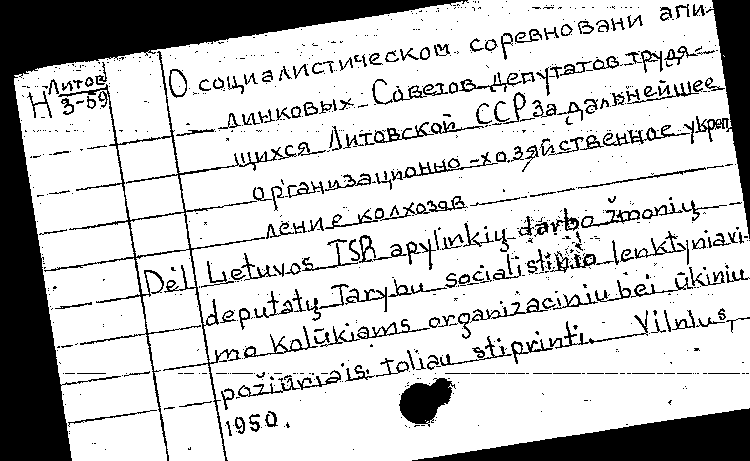 Н Литов
3-59
О социалистическом соревновани апи-
линковых Советов депутатов трудя-
щихся Литовской ССР за дальнейшее
организационно-хозяйственное укреп
ление колхозов
Dėl Lietuvos TSR apylinkių darbo žmonių
deputatų Tarybų socialistinio lenktyniavi-
mo kolūkiams organizaciniu bei ūkiniu
požiūriais toliau stiprinti. Vilnius,
1950.